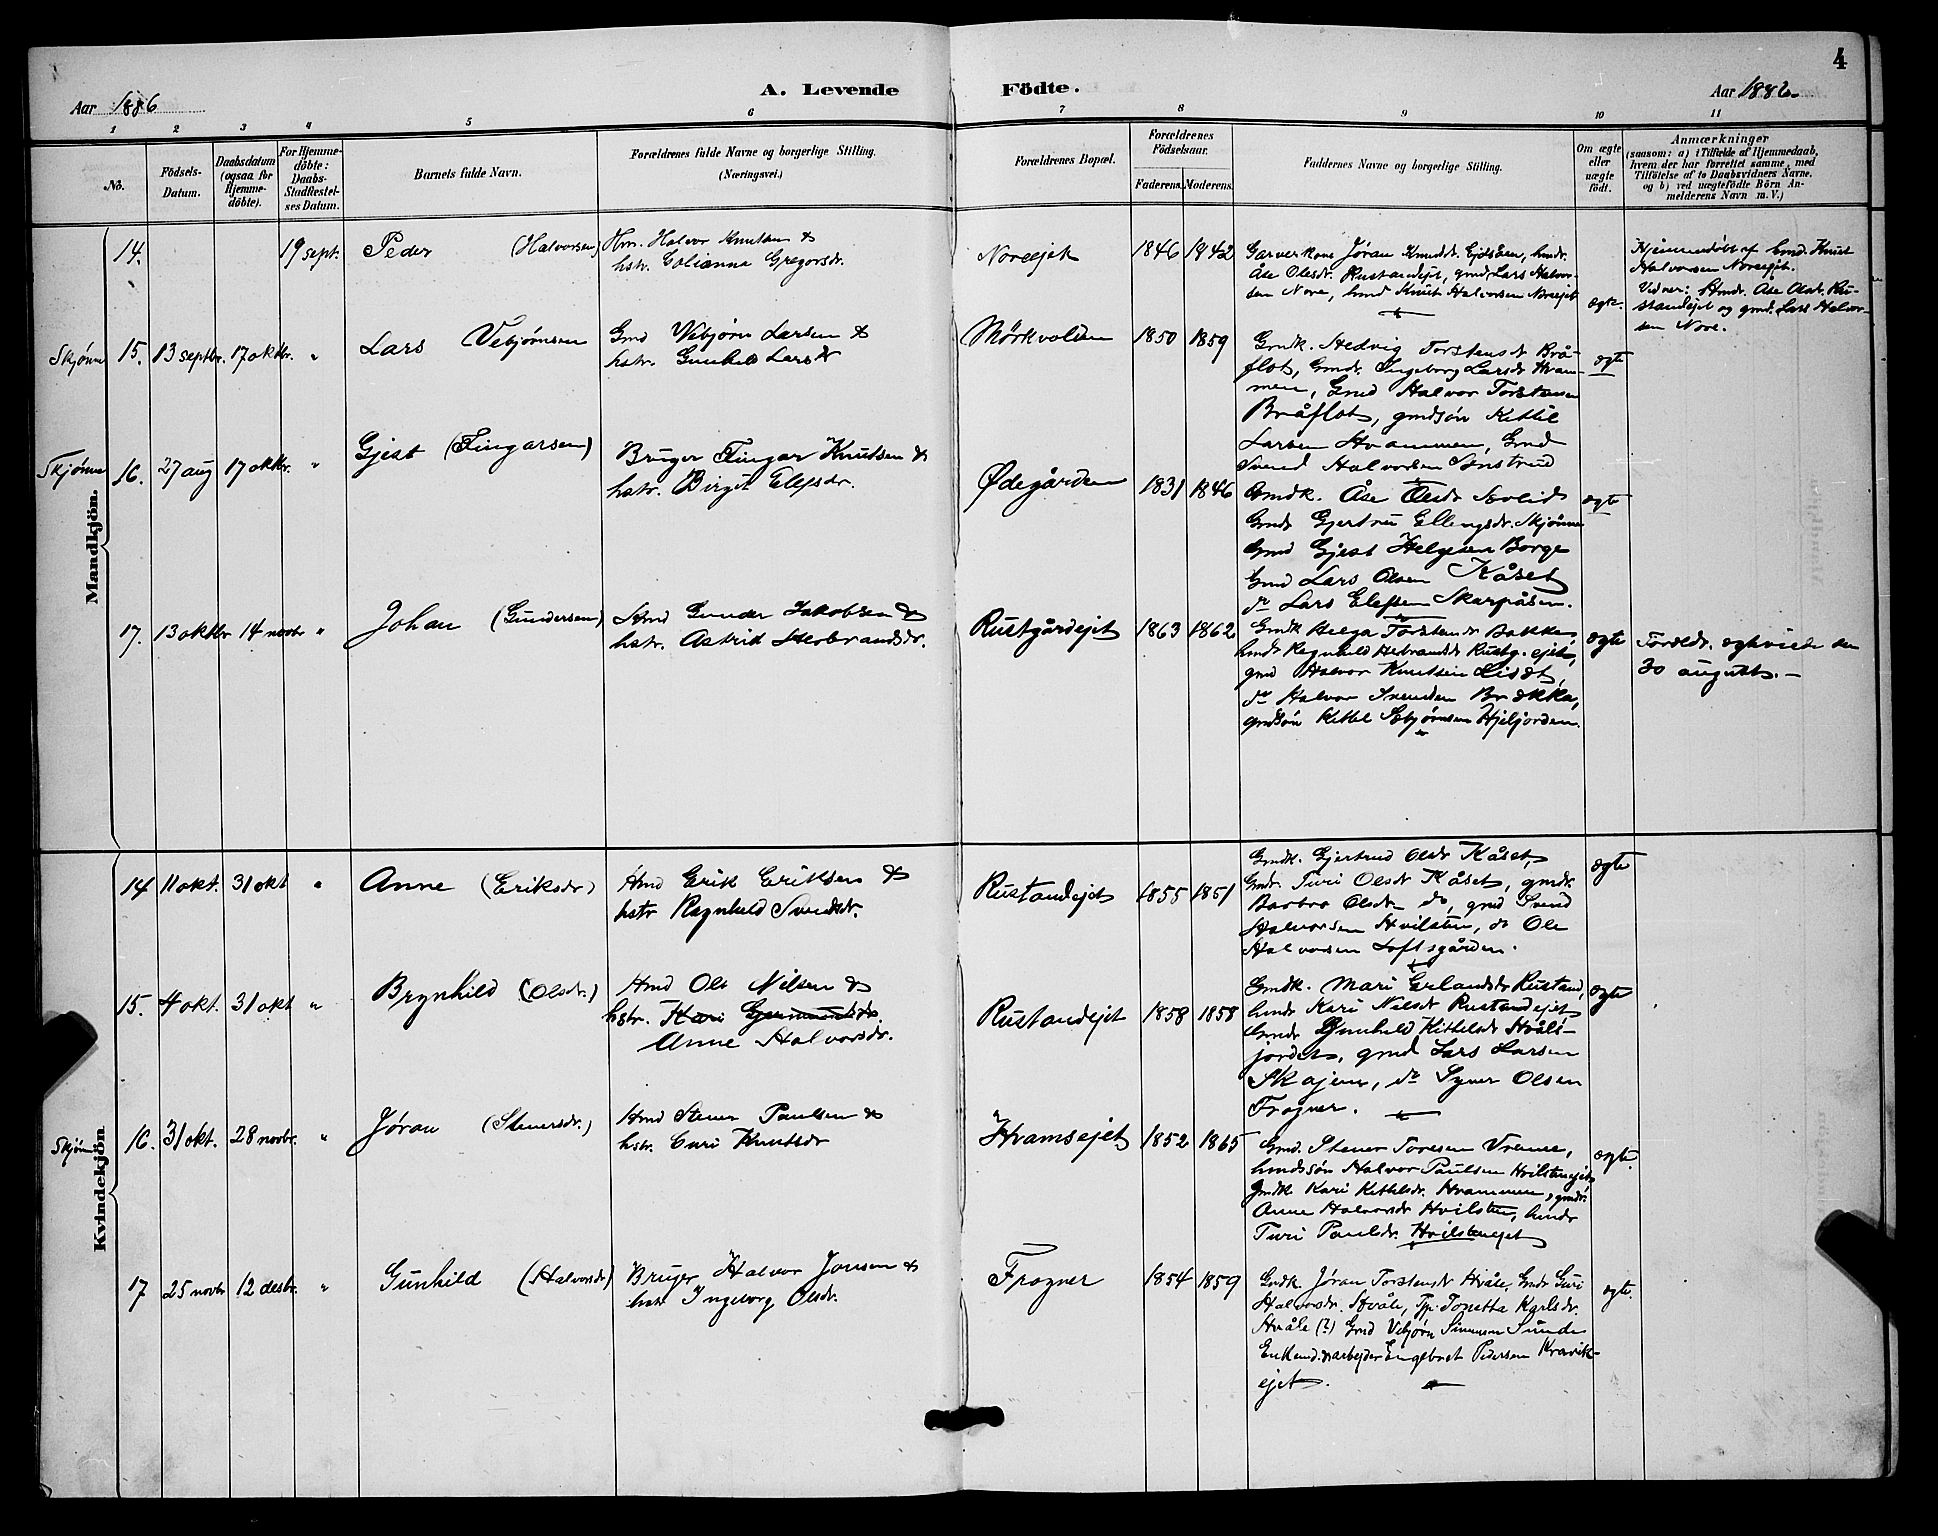 4
Aar 1886
A. Levende Födte.
Aar 1886
1 2 3 4 5 6 7 8 9 10 11
No.
Födsels-
Datum.
Daabsdatum
(ogsaa for
Hjemme-
döbte).
For Hjemme-
döbte:
Daabs-
Stadfæstel-
ses Datum.
Barnets fulde Navn.
Forældrenes fulde Navne og borgerlige Stilling.
(Næringsvei.)
Forældrenes Bopæl.
Forældrenes
Födselsaar.
Faderens. Moderens.
Faddernes Navne og borgerlige Stilling.
Om ægte
eller
uægte
födt.
Anmærkninger
(saasom: a) i Tilfælde af Hjemmedaab,
hvem der har forrettet samme, med
Tilföielse af to Daabsvidners Navne,
og b) ved uægtefödte Börn An-
melderens Navn m. V.)
Mandkjön.
14. 19 sept. Peder (Halvorsen)
Hm. Halvor Knutsen &
hstr. Gregorsdr.
Noreejet 1846 1842
Garverkone Jøran Knudsdr. hmdr.
Åse Olesdr. Rustandejet, gmd Lars Halvor-
sen Nore, hmd Knut Halvorsen Noreejet
ægte
Hjemmedøbt af hmd. Knut
Halvorsen Noreejet.
Vidner: Hmdr. Åse Olsdr. Ru-
standejet og gmd. Lars Halvor-
sen Nore.
Skjønne 15. 13 septbr. 17 oktbr. " Lars Vebjørnsen
Gmd Vebjørn Larsen &
hstr. Gunhild Larsdr
Mørkvolden 1850 1859
Gmdk. Hedvig Torstensdr Brå-
flot, Gmdr. Ingeborg Larsdr Hvam-
men, Gmd Halvor Torstensen
Bråflot, gmdsøn Kittil
Larsen Hvammen, Gmd
Svend Halvorsen Sønstrud
ægte
Skjønne 16. 27 aug 17 oktbr. " Gjest (Fingarsen)
Bruger Fingar Knutsen &
hstr. Birgit Elefsdr.
Ødegården 1831 1846
Gmdk. Åse Olsdr
Gmdr Gjertrud Ellingsdr. Skjønne
Gmd Gjest Helgesen Borge
Gmd Lars Olsen Kåset
do Lars Elefsen Skarpåsen.
ægte
17. 13 oktbr 14 novbr " Johan (Gundersen)
Hmd Gunder Jakobsen &
hstr. Astrid Herbrandsdr.
Rustgårdejet 1863 1862
Gmdk Helga Torstensdr Bakke,
hmdr Ragnhild Herbrandsdr Rustg.ejet,
gmd Halvor Knutsen Lisdt,
do Halvor Svendsen Brækka,
gmdsøn Kittil Sebjørnsen Hjeljorden.
ægte
Foreldr. egteviede den
30 august. –
Kvindekjön.
14 11 okt. 31 okt " Anne (Eriksdr)
Hmd Erik Eriksen &
hstr Ragnhild Svendsdr.
Rustandejet 1855 1851
Gmdk. Gjertrud Olsdr Kåset,
Gmdr. Turi Olsdr Kåset, gmdr.
Barbro Olsdr do, gmd Svend
Halvorsen Hvilsten, do Ole
Halvorsen Loftsgården.
ægte
15. 4 okt. 31 okt " Brynhild (Olsdr.)
Hmd Ole Nilsen &
hstr. Kari Germundsdr.
Anne Halvorsdr.
Rustandejet 1858 1858
Gmdk. Mari Erlandsdr Rustand,
hmdr Kari Nilsdr Rustandejet
Gmdr Gunhild Kittelsdr Hvåls-
jordet, gmd Lars Larsen
Skajem, do Syver Olsen
Frogner.
ægte
Skjønne 16. 31 okt. 28 novbr. " Jøran (Stenersdr.)
Hmd Stener Paulsen &
hstr. Guri Knutsdr
Hvamsejet 1852 1865
Gmd. Stener Toresen Vrenne,
hmdssøn Halvor Paulsen Hvilstenejet
Gmdk Kari Kittelsdr. Hvammen, gmdr.
Anne Halvorsdr Hvilsten, hmdr
Turi Paulsdr. Hvilstenejet
ægte.
17 25 novbr 12 desbr. " Gunhild (Halvorsdr)
Bruger Halvor Jonsen &
hstr Ingeborg Olsdr.
Frogner 1854 1859
Gmdk. Jøran Torstensdr Hvåle, Gmdr Guri
Halvorsdr. Hvåle, Tp. Tonetta Karlsdr.
Hvåle (?) Gmd Vebjørn Simensen Sunde
Enkemd. arbejder Engebret Pedersen Kravik-
ejet.
ægte.